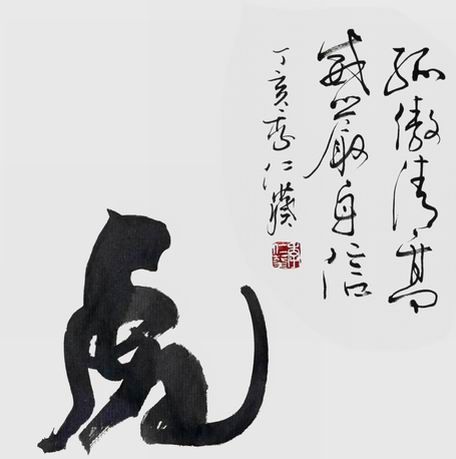 孤傲清高
威嚴自信
丁亥季仁